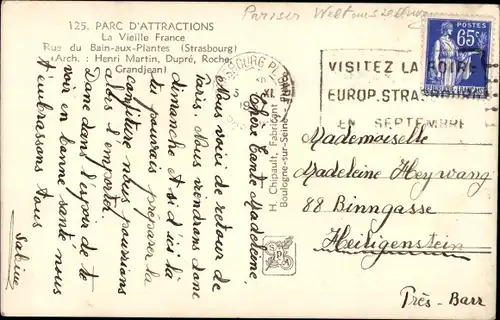 Pariser Weltausstellung
125. PARC D'ATTRACTIONS
La Vieille France
Rue du Bain-aux-Plantes (Strasbourg)
(Arch. : Henri Martin, Dupré, Roche,
Grandjean)
Chère Tante Madeleine,
Nous voici de retour de
Paris. Nous viendrons dans
dimanche et si d'ici là
tu pouvais préparer la
confiture nous pourrions
alors l'emporter.
Dans l'espoir de te
voir en bonne santé nous
t'embrassons tous
Sabine
H. Chipault, Fabricant
Boulogne-sur-Seine
SPA
65c
VISITEZ LA FOIRE
EUROP. STRASBOURG
EN SEPTEMBRE
Mademoiselle
Madeleine Heywang
88 Binngasse
Heiligenstein
Près-Barr